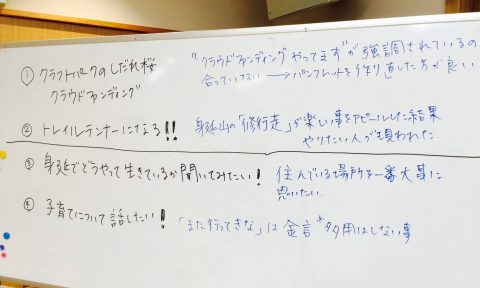 ① クラフトパークのしだれ桜
クラウドファンディング
"クラウドファンディングやってます"が強調されているの
合っていない→パンフレットを作り直した方が良い
② トレイルランナーになろう!!
身延山の「修行走」が楽しい事をアピールした結果
やりたい人が現われた。
③ 身延でどうやって生きているか聞いてみたい!
住んでいる場所を一番大事に
思いたい。
④ 子育てについて話したい!
「また行ってきな」は金言 *多用はしない事